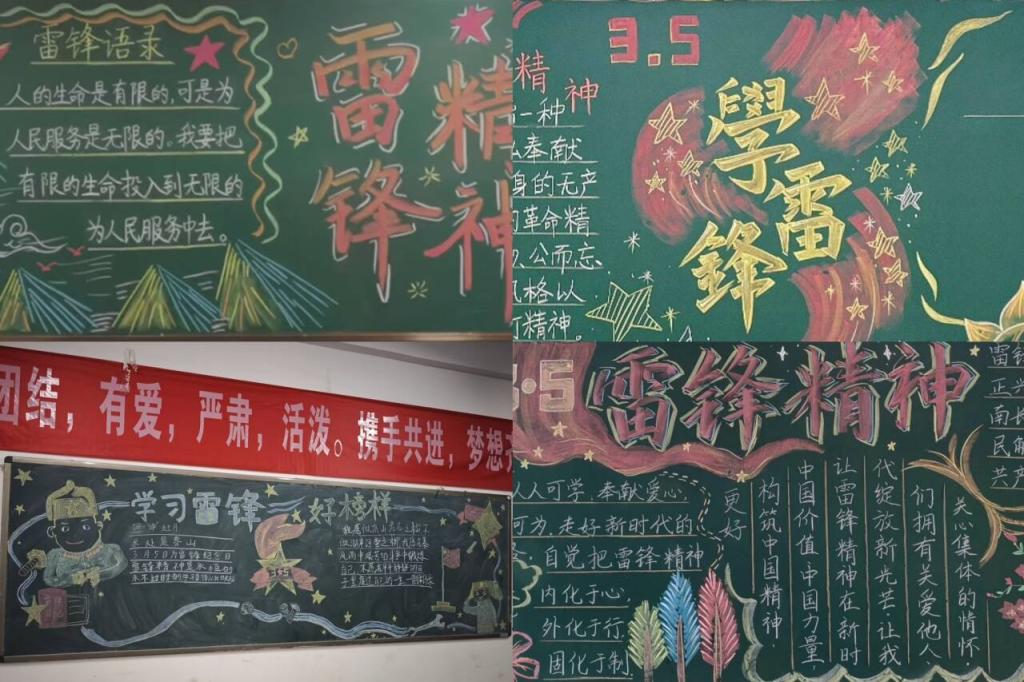 雷锋语录
人的生命是有限的,可是为
人民服务是无限的。我要把
有限的生命投入到无限的
为人民服务中去。
雷锋
精神
3.5
精神
一种
奉献
身的无产
的革命精
公而忘
风格以
精神。
學雷
鋒
团结，有爱，严肃，活泼。携手共进，梦想
学习雷锋 好榜样
3月5日为雷锋纪念日
3.5
·5
雷锋精神
人人可学,奉献爱心
可为,走好新时代的
自觉把雷锋精神
内化于心,
外化于行
固化于制
更好
构筑中国精神
中国价值中国力量,
让雷锋精神在新时
代绽放新光芒让我
们拥有关爱他人、
关心集体的情怀,
雷锋
正兴
南长
民解
共产